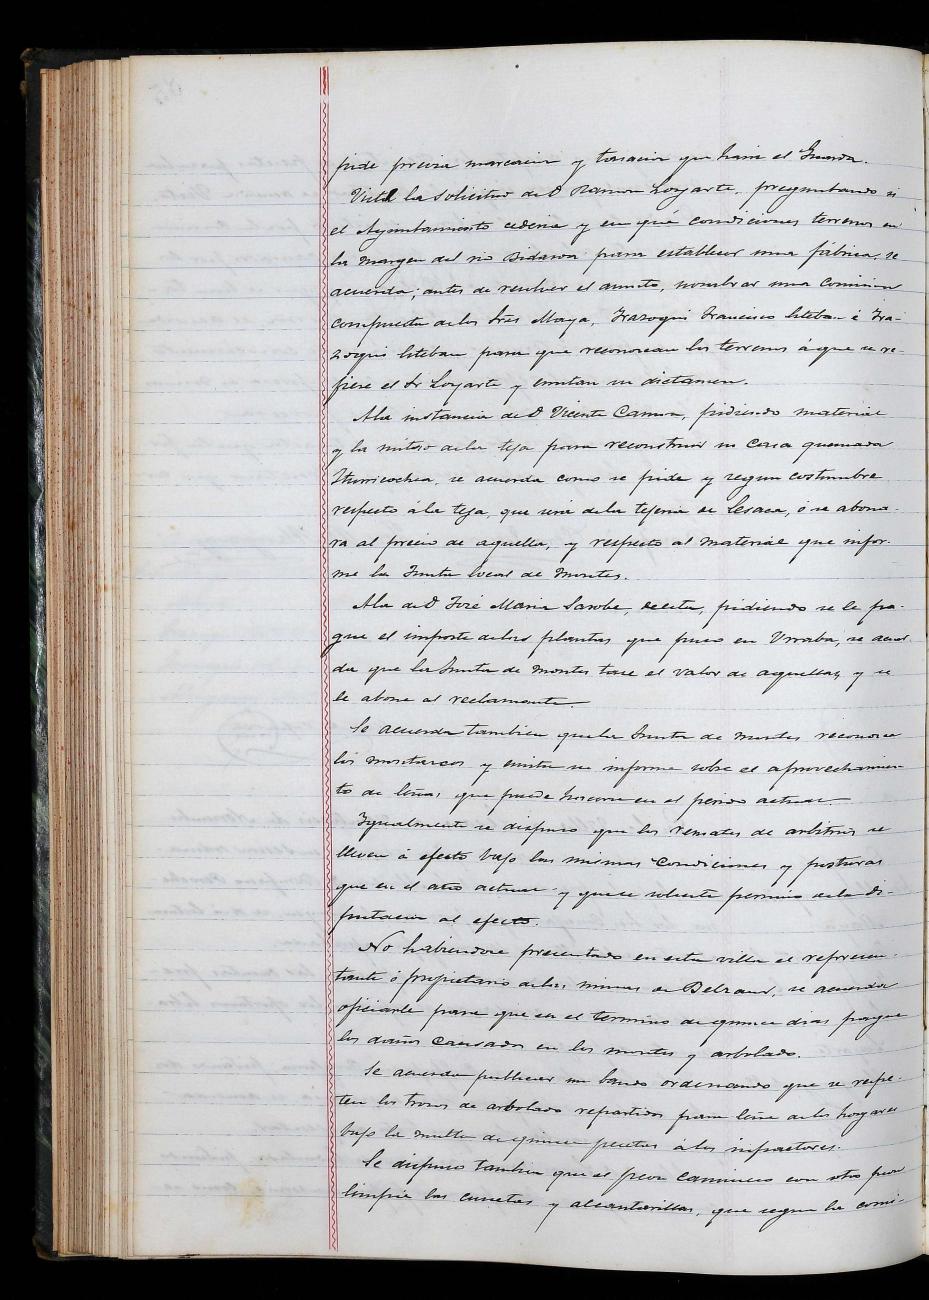 pide previa marcacion y tasacion que hará el Guarda.
Vista la solicitud de D Ramon Loyarte, preguntando si
el Ayuntamiento cederia y en qué condiciones terrenos en
la margen del rio Bidasoa para establecer una fábrica, se
acuerda; antes de resolver el asunto, nombrar una comision
compuesta de los Sres Maya, Irazoqui Francisco Esteban é Ira-
zoqui Esteban para que reconozcan los terrenos á que se re-
fiere el Sr Loyarte y emitan su dictamen.
A la instancia de D Vicente Camon, pidiendo material
y la mitad de la teja para reconstruir su casa quemada
Iturricochea, se acuerda como se pide y segun costumbre
respecto á la teja, que será de la tejeria de Lesaca, ó se abona-
rá al precio de aquella, y respecto al material que infor-
me la Junta local de Montes.
A la de D José Maria Sarobe, pidiendo se le pa-
gue el importe de las plantas que puso en Unraba, se acuer-
da que la Junta de montes tase el valor de aquellas, y se
le abone al reclamante.
Se acuerda tambien que la Junta de montes reconozca
los montazcos y emita su informe sobre el aprovechamien-
to de leñas que puede hacerse en el periodo actual.
Igualmente se dispuso que los remates de arbitrios se
lleven á efecto bajo las mismas condiciones y posturas
que en el año actual y que se solicite permiso de la Di-
putacion al efecto.
No habiendose presentado en esta villa el represen-
tante ó propietario de las minas de Belzaur, se acuerda
oficiarle para que en el termino de quince dias pague
los daños causados en los montes y arbolado.
Se acuerda publicar un bando ordenando que se respe-
ten los trozos de arbolado repartidos para leña de los hogares
bajo la multa de quince pesetas á los infractores.
Se dispuso tambien que el peon caminero con otro peon
limpie las cunetas y alcantarillas, que segun la comi-